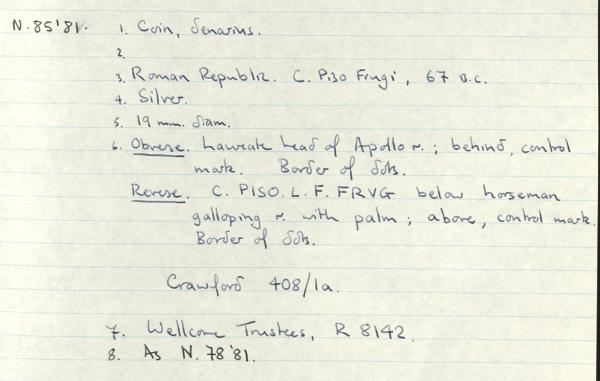 N.85'81. 1. Coin, denarius.
2.
3. Roman Republic. C. Piso Frugi, 67 B.C.
4. Silver.
5. 19 mm. diam.
6. Obverse. Laureate head of Apollo r.; behind, control
mark. Border of dots.
Reverse. C. PISO. L. F. FRVG below horseman
galloping r. with palm; above, control mark.
Border of dots.
Crawford 408/1a.
7. Wellcome Trustees, R 8142.
8. As N. 78'81.